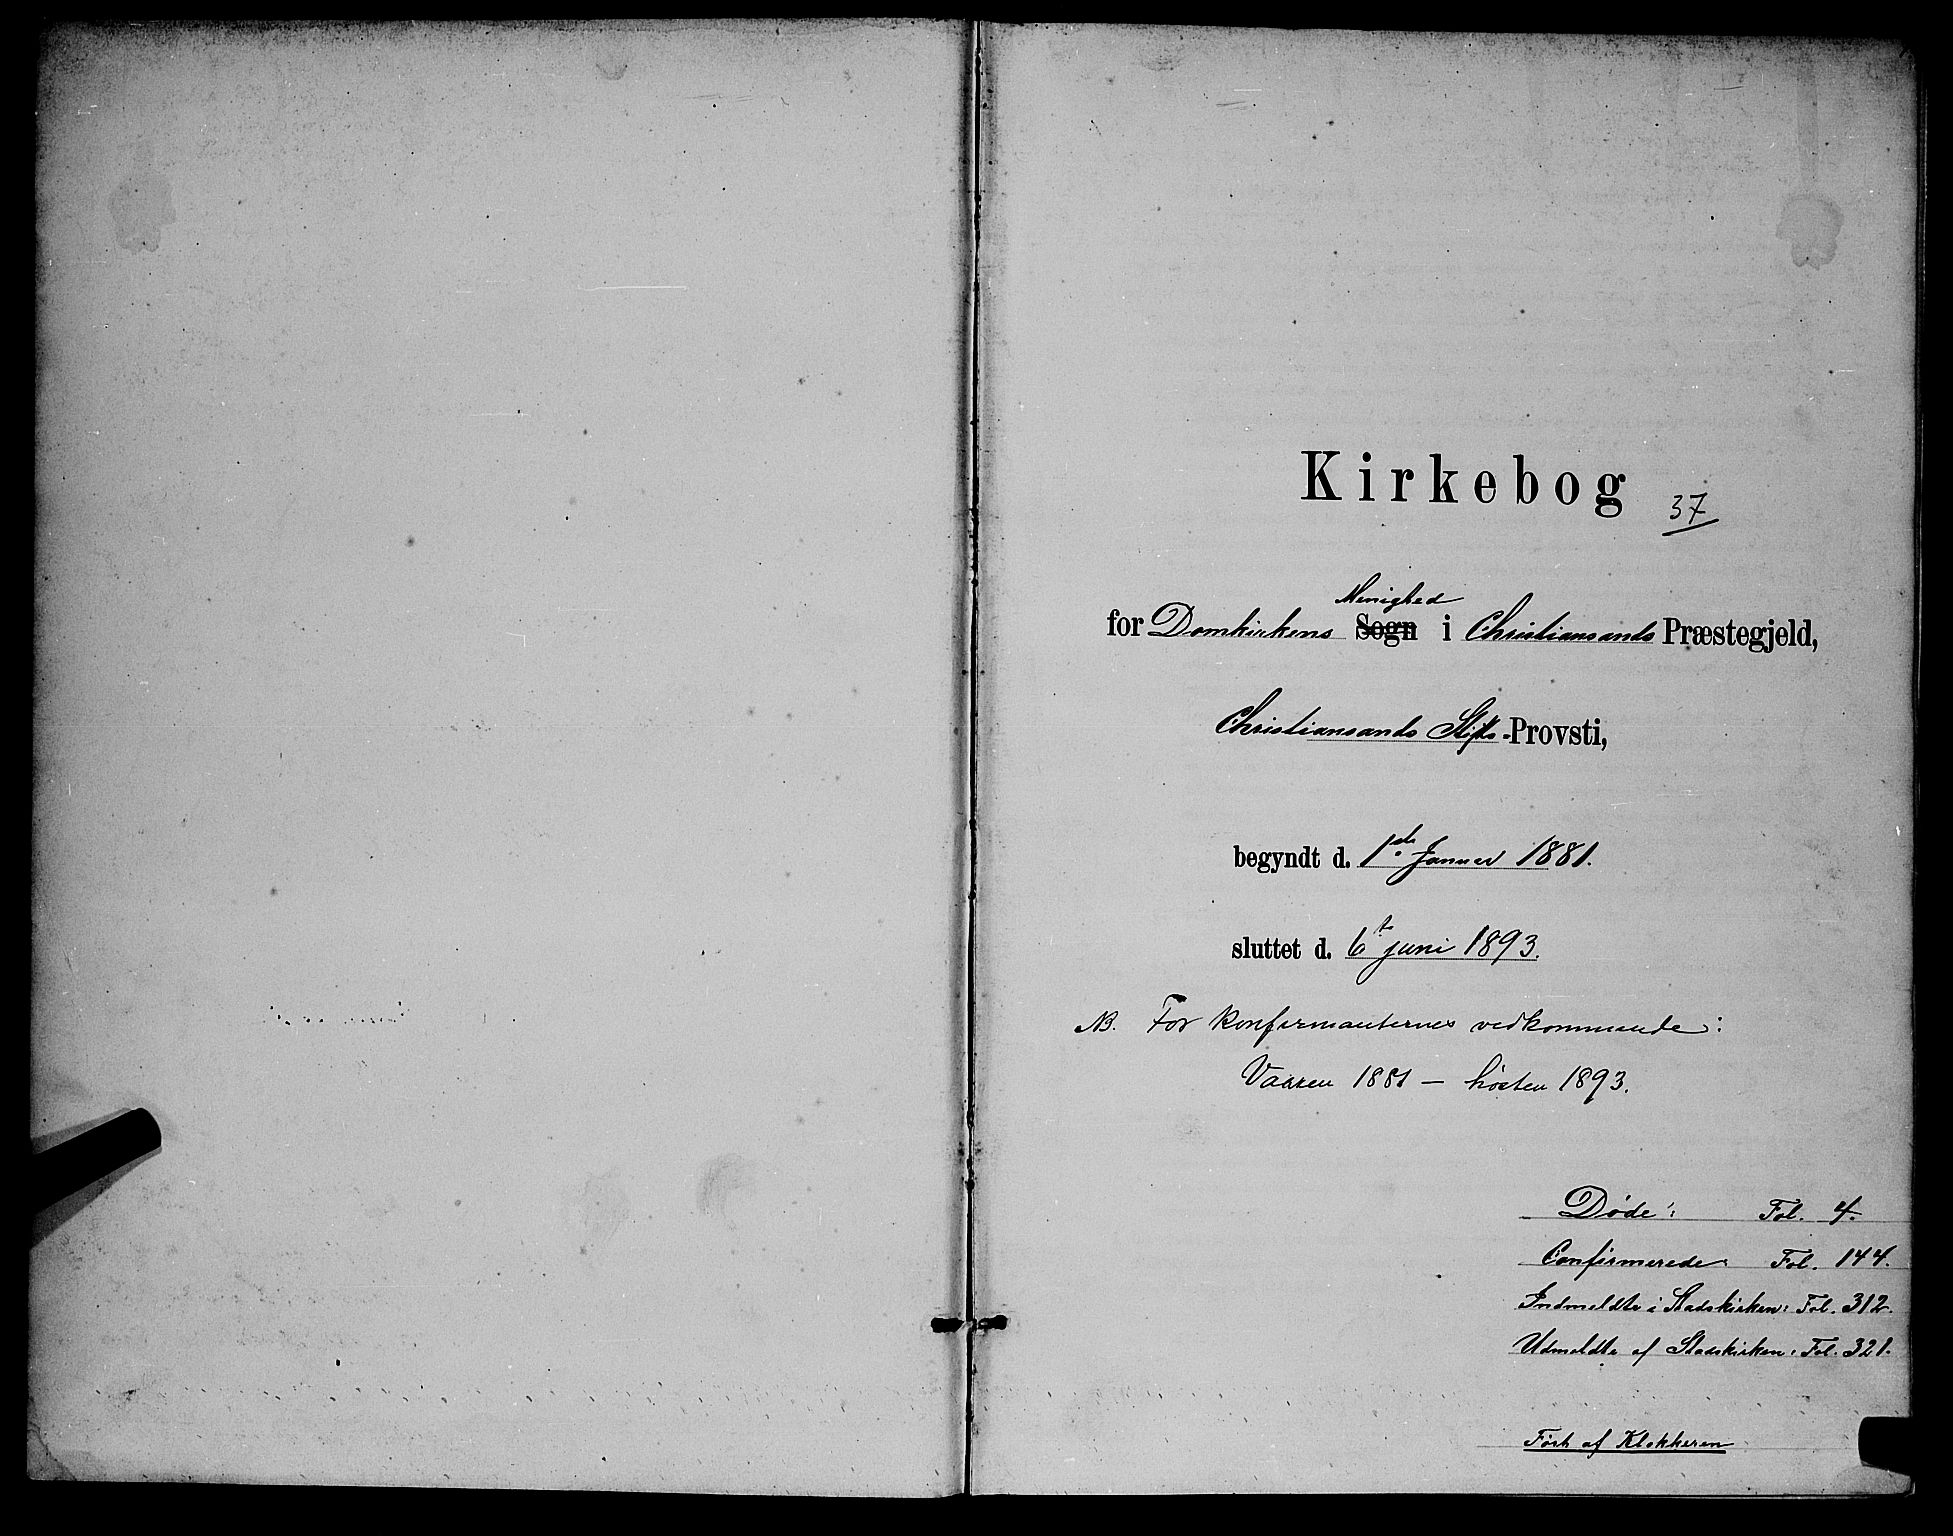 Kirkebog
37
Menighed
for Domkirkens Sogn i Christiansands Præstegjeld,
Christiansands Stifts-Provsti,
begyndt d. 1ste Januar 1881.
sluttet d. 6te juni 1893.
NB. For konfirmanternes vedkommende:
Vaaren 1881 – høsten 1893.
Døde: Fol. 4.
Confirmerede: Fol. 144.
Indmeldte i Stadskirken: Fol. 312.
Udmeldte af Stadskirken: Fol. 321.
Ført af Klokkeren